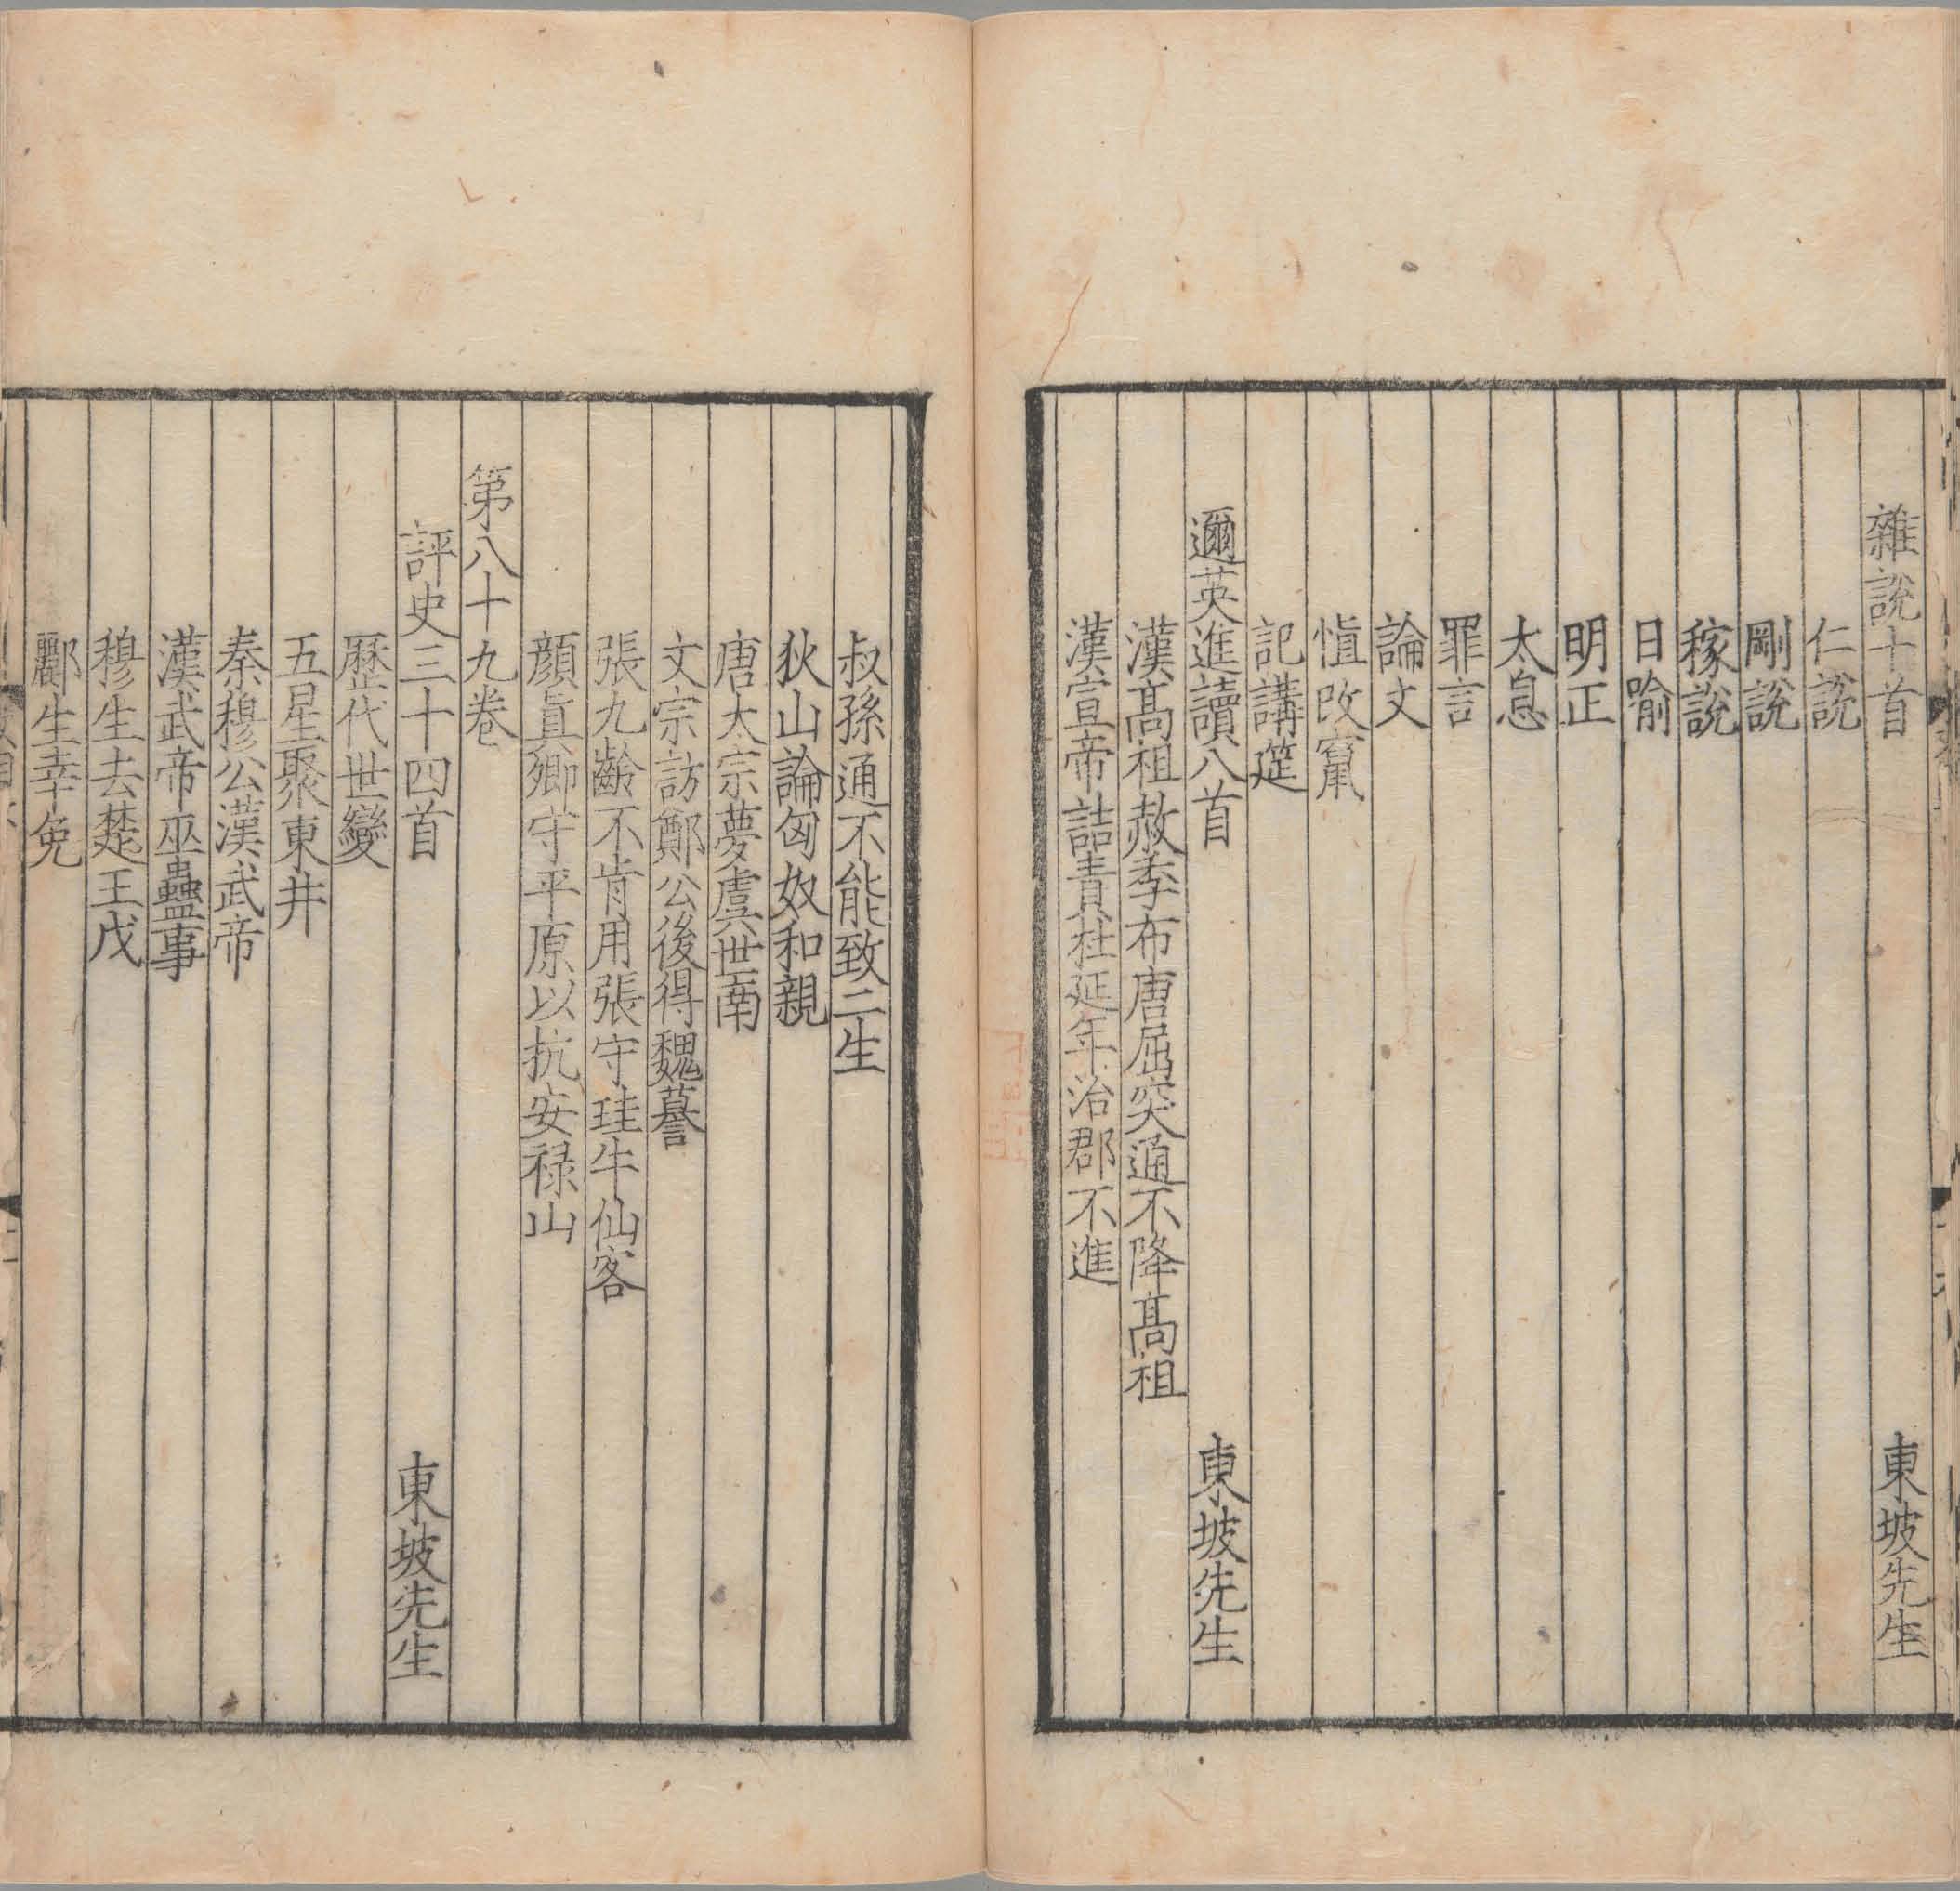 雜說十首 東坡先生
仁說
剛說
稼說
日喻
明正
太息
罪言
論文
慎改竄
記講筵
邇英進讀八首 東坡先生
漢髙祖赦季布唐屈突通不降髙祖
漢宣帝詰責杜延年治郡不進
叔孫通不能致二生
狄山論匈奴和親
唐太宗夢虞世南
文宗訪鄭公後得魏謩
張九齡不肯用張守珪牛仙客
顔眞卿守平原以抗安禄山
第八十九卷
評史三十四首 東坡先生
歷代世變
五星聚東井
秦穆公漢武帝
漢武帝巫蠱事
穆生去楚王戊
酈生幸免